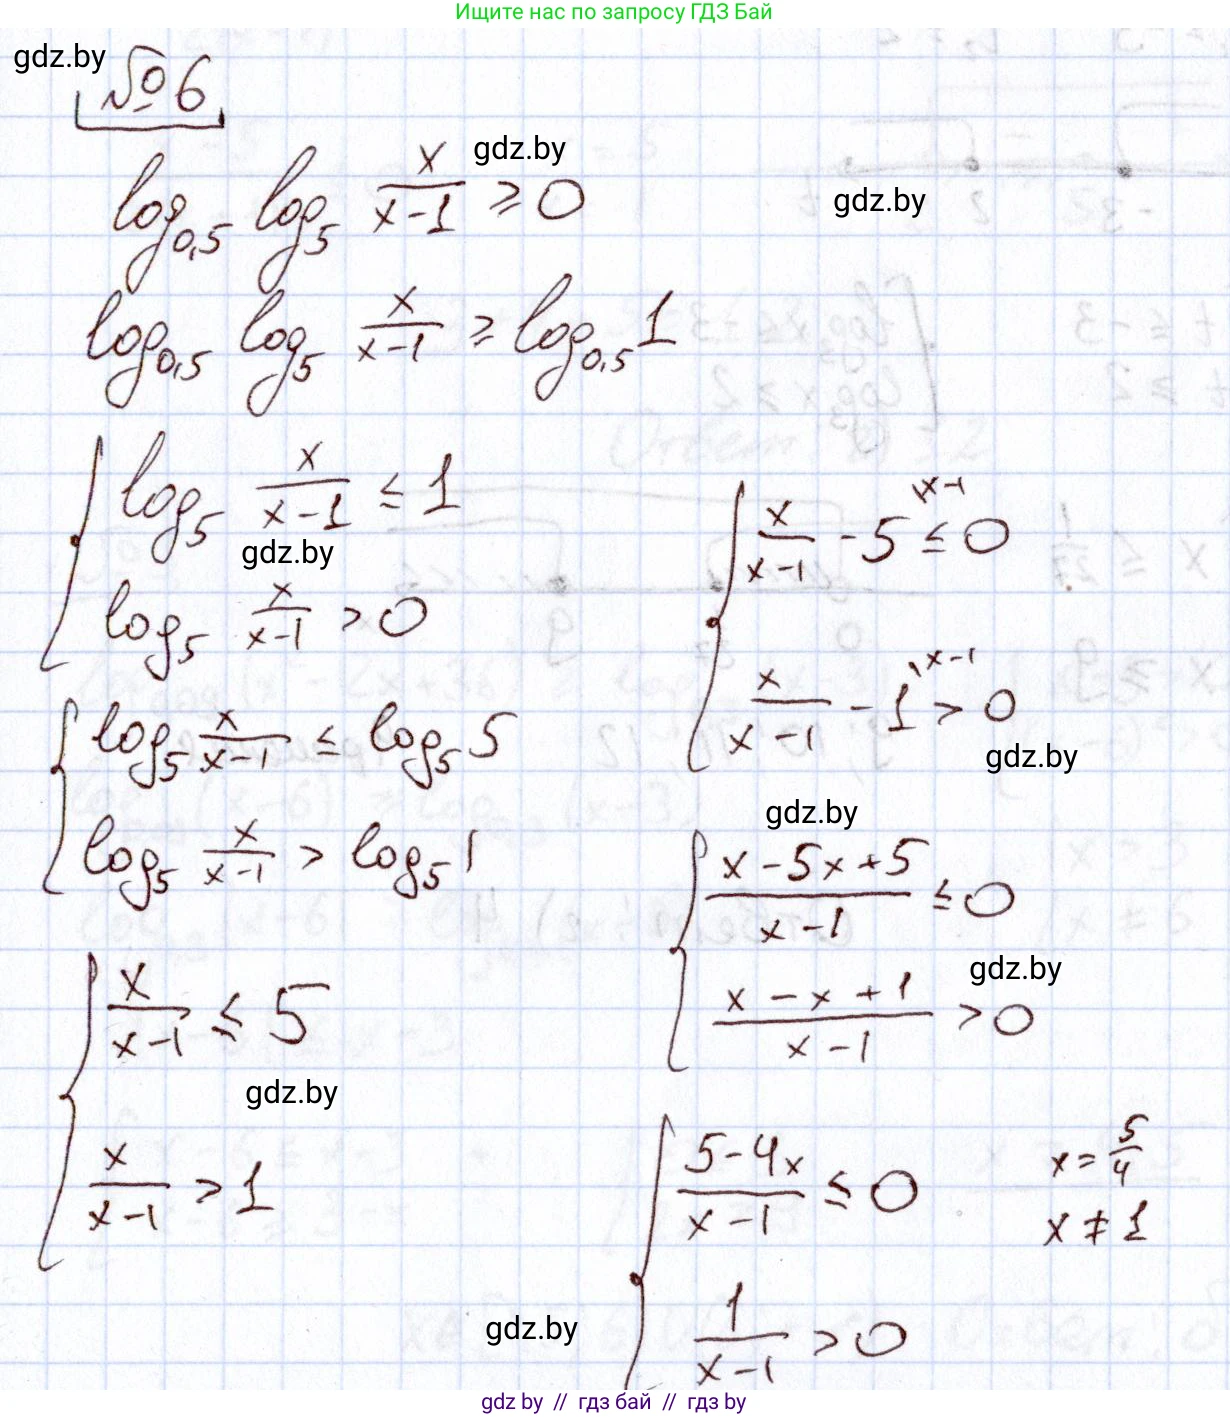 Ищите нас по запросу ГДЗ Бай
gdz.by
№6
log_{0,5} log_5 \frac{x}{x-1} ≥ 0
gdz.by
gdz.by
log_{0,5} log_5 \frac{x}{x-1} ≥ log_{0,5} 1
{ log_5 \frac{x}{x-1} ≤ 1
gdz.by
log_5 \frac{x}{x-1} > 0
{ log_5 \frac{x}{x-1} ≤ log_5 5
log_5 \frac{x}{x-1} > log_5 1
{ \frac{x}{x-1} ≤ 5
gdz.by
\frac{x}{x-1} > 1
{ \frac{x}{x-1} - 5^{\x-1} ≤ 0
\frac{x}{x-1} - 1^{\x-1} > 0
gdz.by
gdz.by
{ \frac{x-5x+5}{x-1} ≤ 0
gdz.by
\frac{x-x+1}{x-1} > 0
{ \frac{5-4x}{x-1} ≤ 0
x = \frac{5}{4}
x ≠ 1
\frac{1}{x-1} > 0
gdz.by
gdz by // гдз бай // гдз by